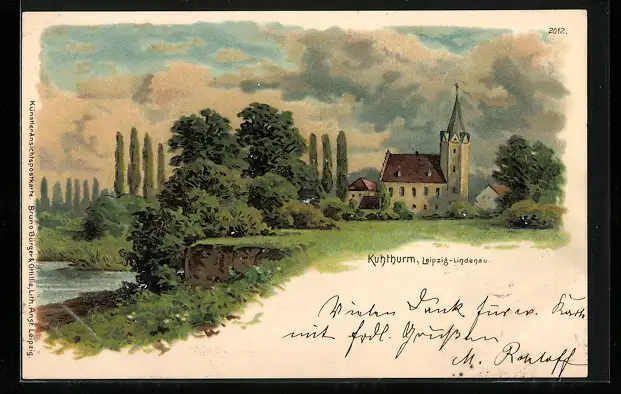 2012.
Künstler-Ansichtspostkarte. Bruno Bürger & Ottillie, Lith. Anst. Leipzig.
Kuhthurm, Leipzig-Lindenau.
Vielen Dank für w. Karte
mit frdl. Grüßen
M. Rohloff